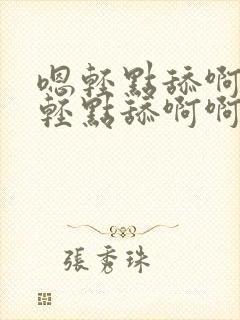 嗯輕點舔啊
輕點舔啊啊
張秀珠